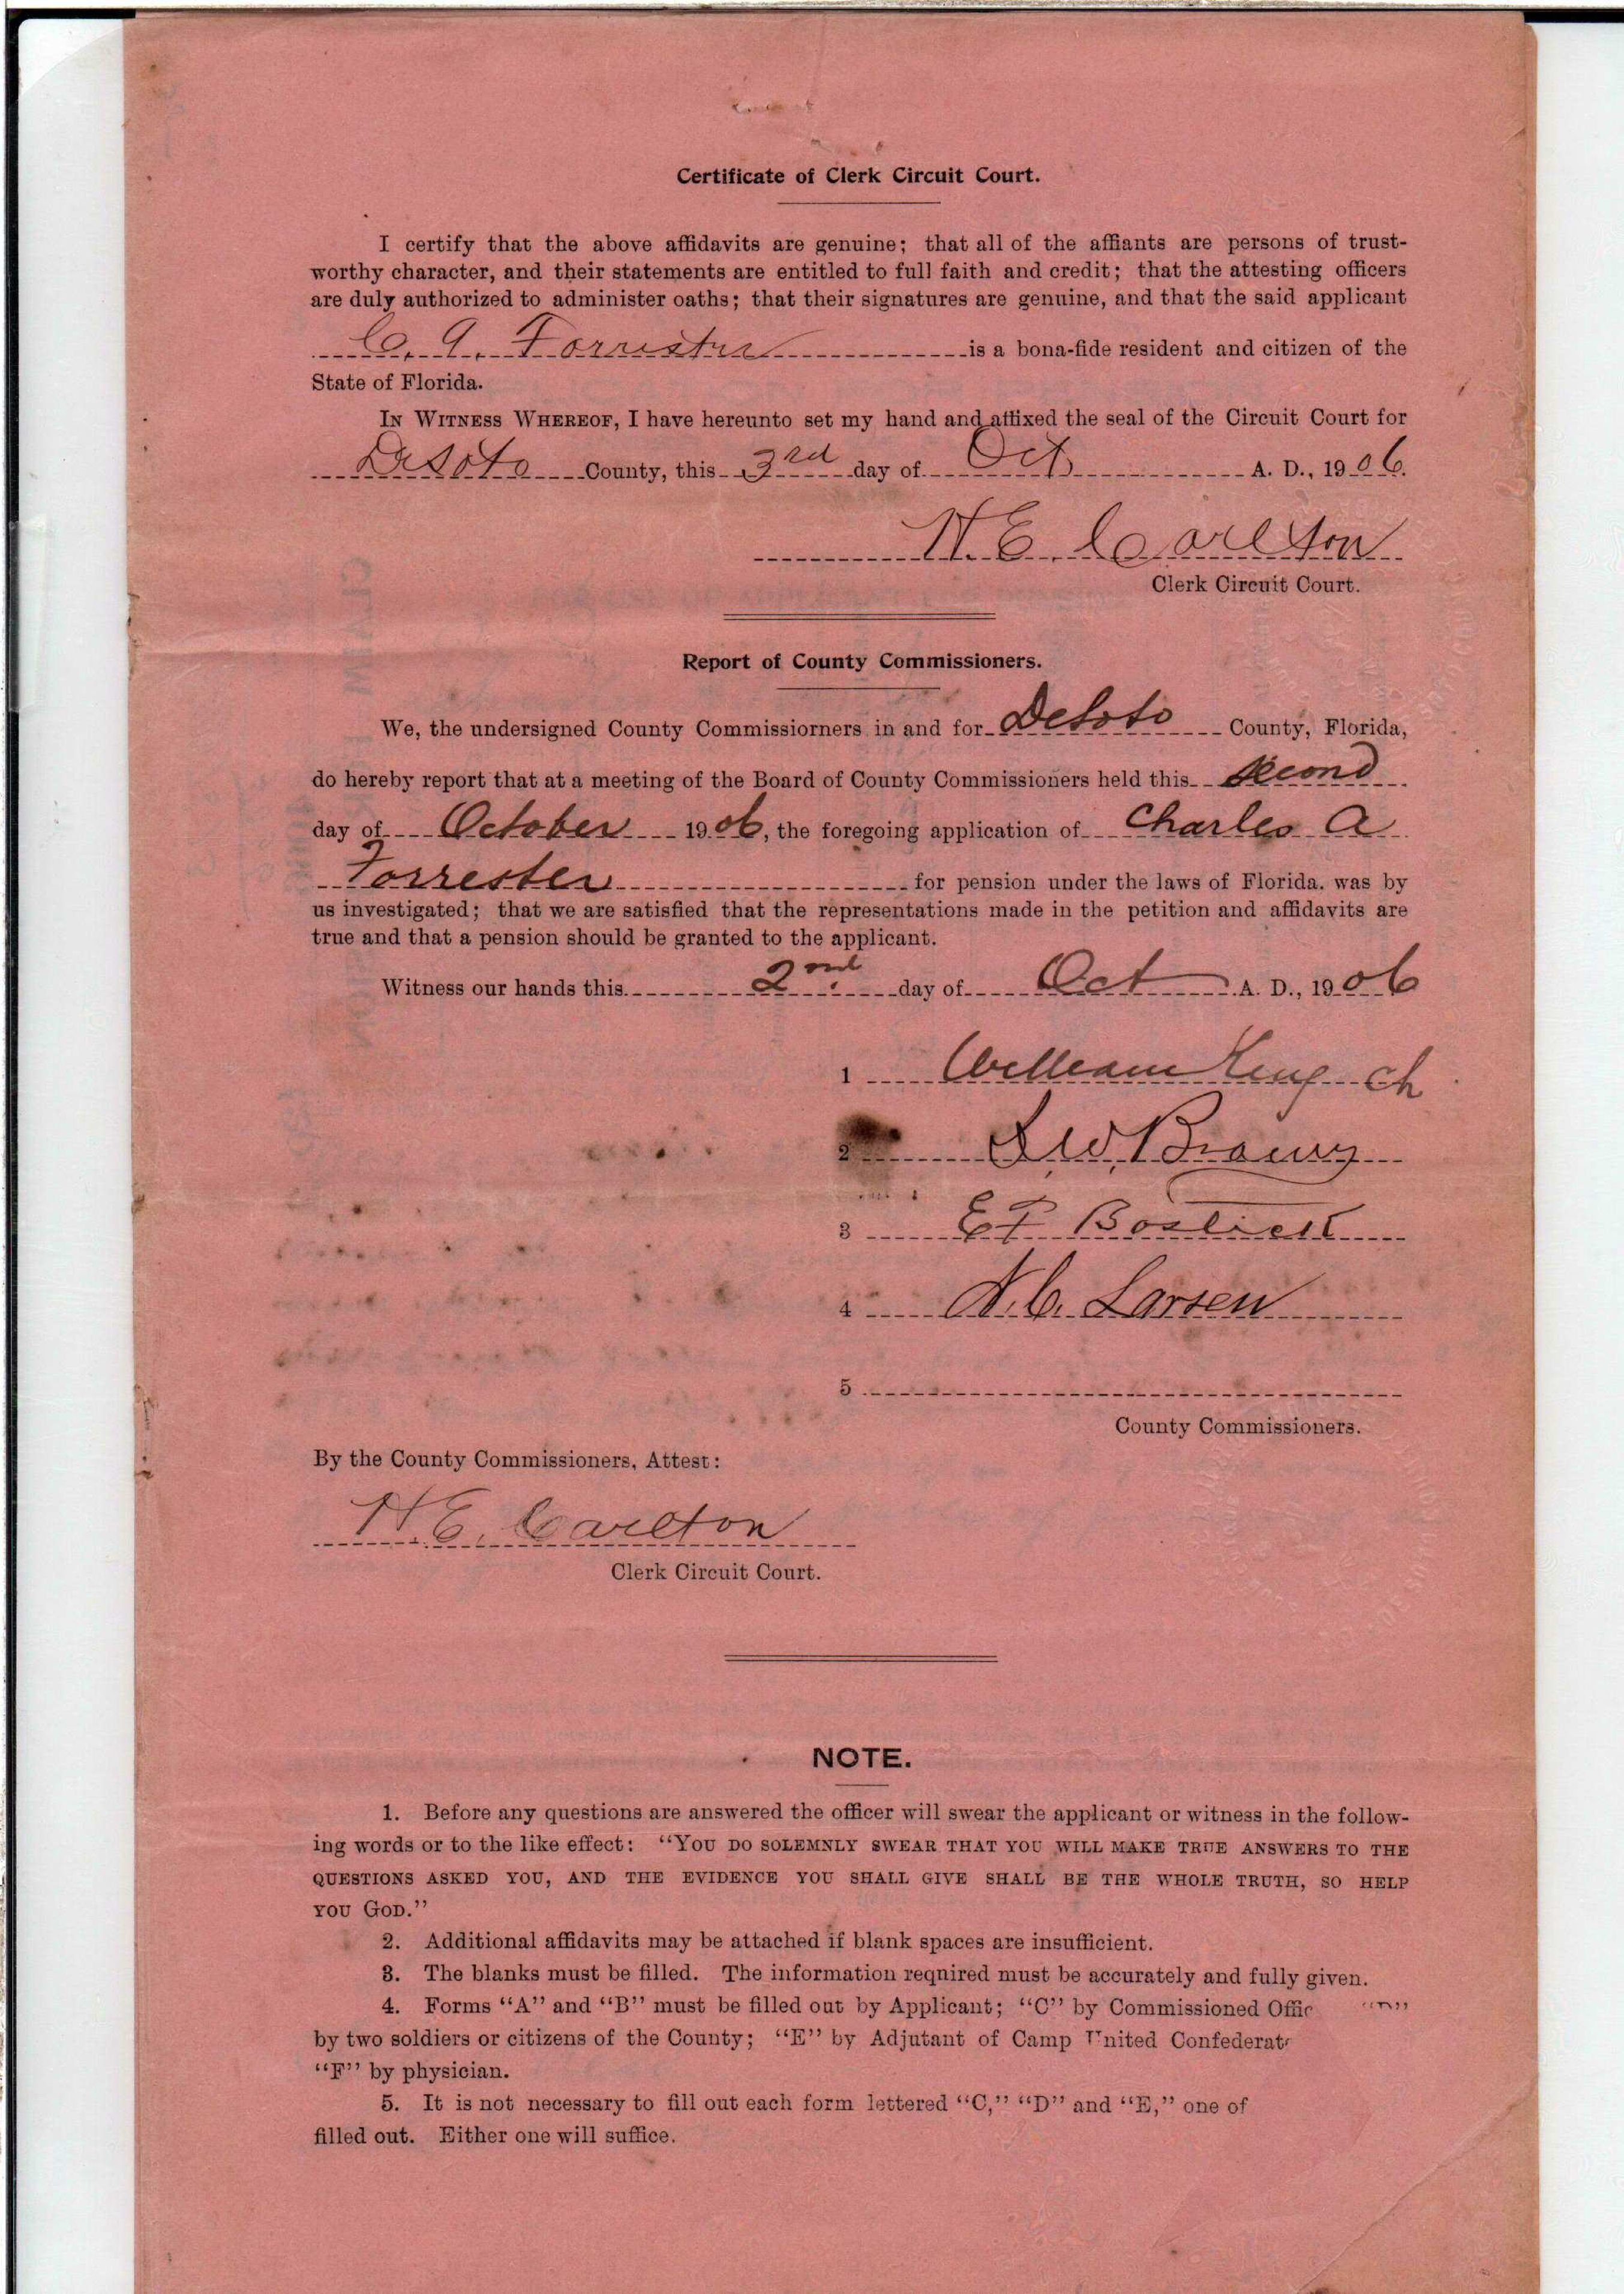 Certificate of Clerk Circuit Court.
I certify that the above affidavits are genuine; that all of the affiants are persons of trust-
worthy character, and their statements are entitled to full faith and credit; that the attesting officers
are duly authorized to administer oaths; that their signatures are genuine, and that the said applicant
C. A. Forrister is a bona-fide resident and citizen of the
State of Florida.
IN WITNESS WHEREOF, I have hereunto set my hand and affixed the seal of the Circuit Court for
DeSoto County, this 3rd day of Oct A. D., 1906.
H. E. Carlton
Clerk Circuit Court.
Report of County Commissioners.
We, the undersigned County Commissiorners in and for DeSoto County, Florida,
do hereby report that at a meeting of the Board of County Commissioners held this second
day of October 1906, the foregoing application of Charles A
Forrester for pension under the laws of Florida. was by
us investigated; that we are satisfied that the representations made in the petition and affidavits are
true and that a pension should be granted to the applicant.
Witness our hands this 2nd day of Oct A. D., 1906
1 William King ch
2
3 Bostick
4 Larsen
5
County Commissioners.
By the County Commissioners, Attest:
H. E. Carlton
Clerk Circuit Court.
NOTE.
1. Before any questions are answered the officer will swear the applicant or witness in the follow-
ing words or to the like effect: "YOU DO SOLEMNLY SWEAR THAT YOU WILL MAKE TRUE ANSWERS TO THE
QUESTIONS ASKED YOU, AND THE EVIDENCE YOU SHALL GIVE SHALL BE THE WHOLE TRUTH, SO HELP
YOU GOD."
2. Additional affidavits may be attached if blank spaces are insufficient.
3. The blanks must be filled. The information reqnired must be accurately and fully given.
4. Forms "A" and "B" must be filled out by Applicant; "C" by Commissioned Offic "D"
by two soldiers or citizens of the County; "E" by Adjutant of Camp United Confederat
"F" by physician.
5. It is not necessary to fill out each form lettered "C," "D" and "E," one of
filled out. Either one will suffice.